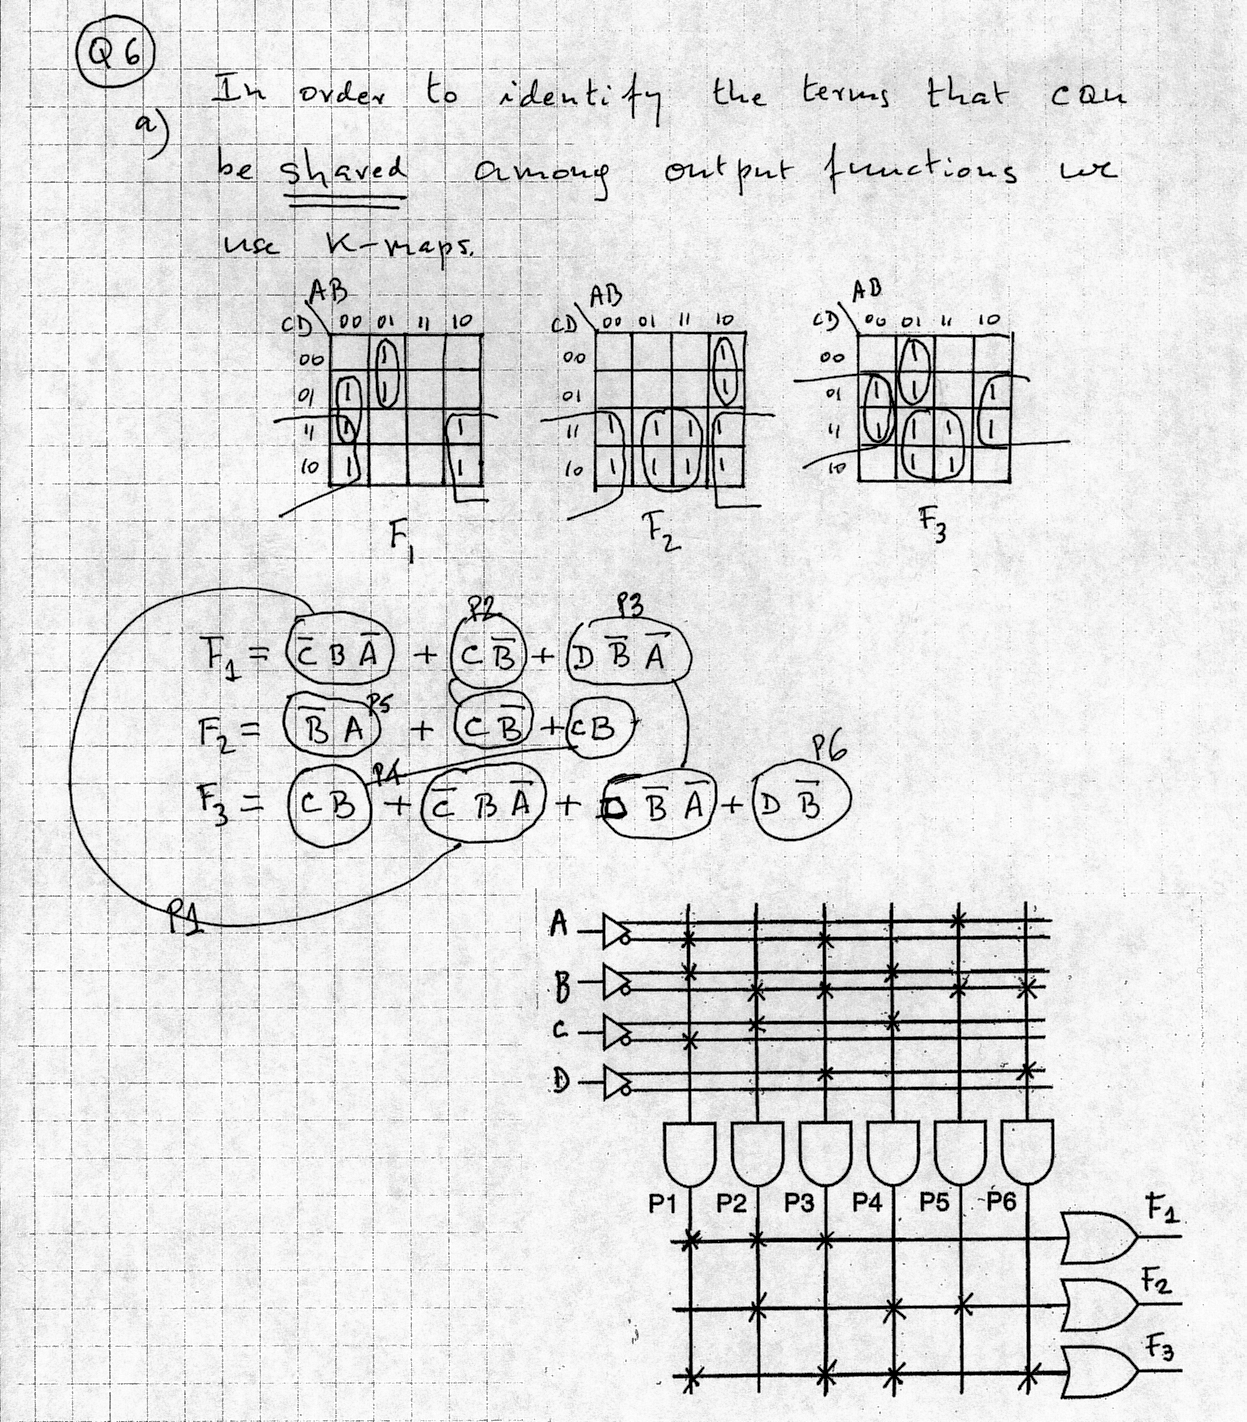 Q6
a) In order to identify the terms that can
be shared among output functions we
use K-maps.
AB AB AB
CD 00 01 11 10 CD 00 01 11 10 CD 00 01 11 10
00 1 00 1 00 1
01 1 1 01 1 01 1 1 1
11 1 1 11 1 1 1 1 11 1 1 1 1
10 1 1 10 1 1 1 1 10 1 1
F1 F2 F3
P2 P3
F1 = C̅ B A̅ + C B̅ + D B̅ A̅
F2 = B̅ A P5 + C B̅ + CB
P6
F3 = C B P4 + C̅ B A̅ + D B̅ A̅ + D B̅
P1
A
B
C
D
P1 P2 P3 P4 P5 P6
F1
F2
F3